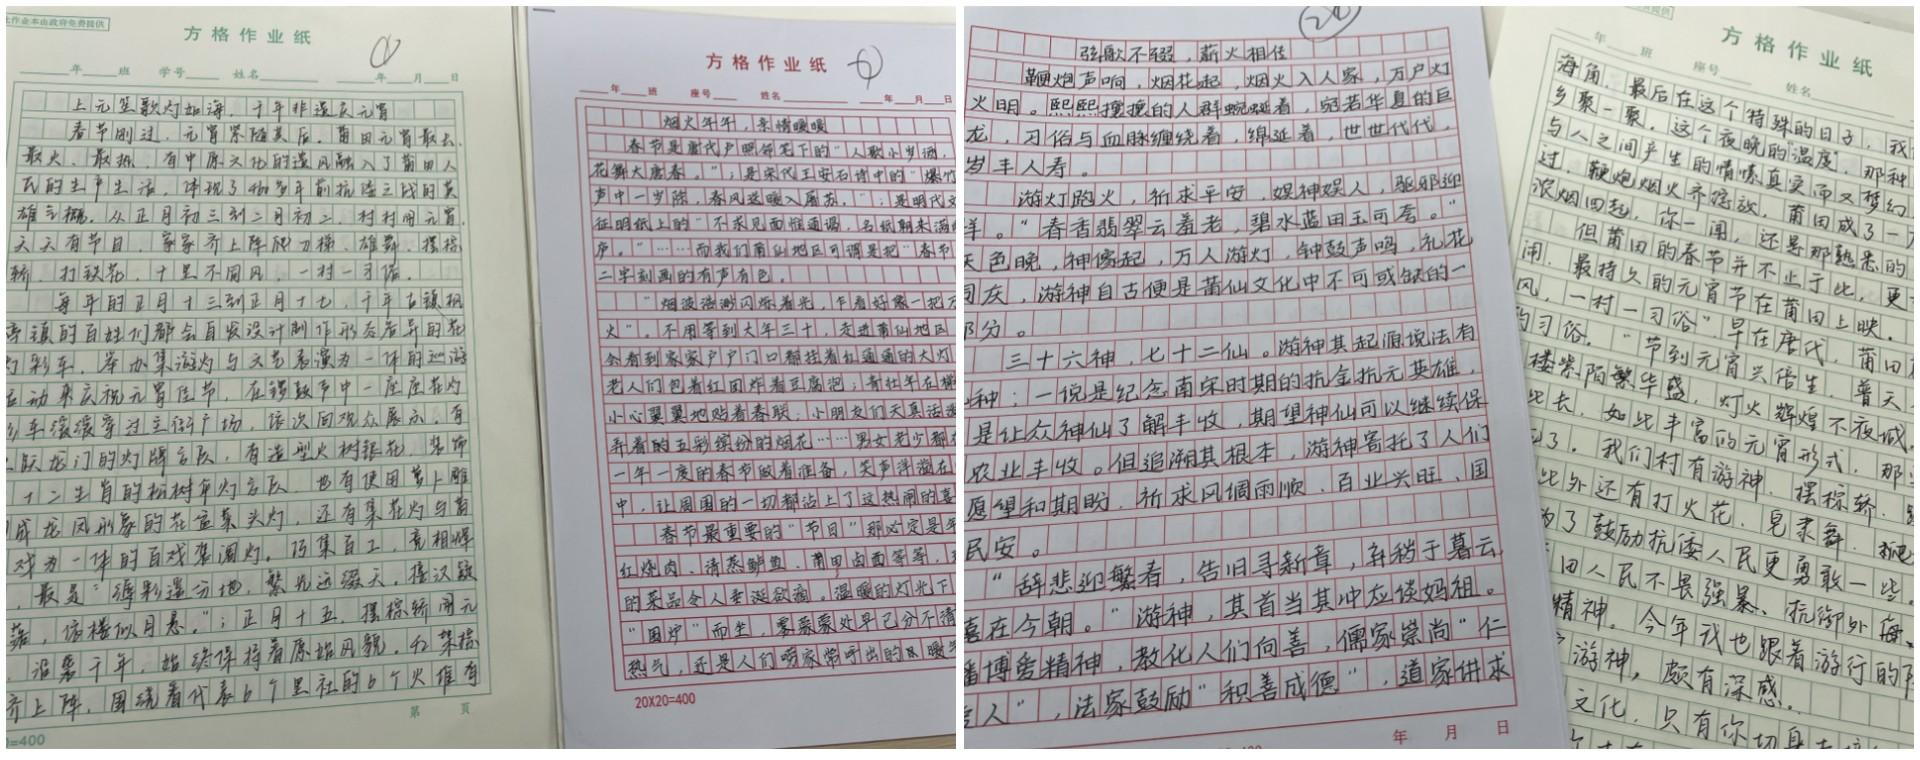 作业本由政府免费提供
方格作业纸
年 班 学号 姓名 年 月 日
上元笙歌灯如海，千年非遗庆元宵
春节刚过，元宵紧随其后，莆田元宵最长、
最火、最热，有中原文化的遗风融入了莆田人
民的生产生活，体现了
雄气概。从正月初三到二月初二，村村闹元宵，
天天有节目，家家齐上阵爬刀梯、雄舞、摆棕
轿、打铁花，十里不同风，一村一习俗。
每年的正月十三到正月十七，千年古镇枫
亭镇的百姓们都会自发设计制作形态各异的花
灯彩车，举办集游灯与文艺表演为一体的巡游
活动来庆祝元宵佳节。在锣鼓声中一座座花灯
彩车缓缓穿过主街广场，依次向观众展示，有
跃龙门的灯牌方队，有造型火树银花、装饰
十二生肖的松树伞灯方队，也有使用萝卜雕
成龙凤形象的花盆菜头灯，还有集花灯与莆
戏为一体的百戏装阁灯。巧集百工，亮相
，最是“薄彩遗兮地，繁光远缀天，接汉疑
落，依楼似月悬。”；正月十五，摆棕轿闹元
，沿袭千年，始终保持着原始风貌，
齐上阵，围绕着代表6个里社的6个火堆有
第 页
=400
方格作业纸
年 班 座号 姓名 年 月 日
烟火年年，亲情暖暖
春节是唐代卢照邻笔下的“人歌小岁酒，
花舞大唐春。”；是宋代王安石诗中的“爆竹
声中一岁除，春风送暖入屠苏。”；是明代文
征明纸上的“不求见面惟通谒，名纸朝来满
庐。”……而我们莆仙地区可谓是把“春节
二字刻画的有声有色。
“烟波浩渺闪烁着光，乍看好像一把
火”。不用等到大年三十，走进莆仙地区
会看到家家户户门口都挂着红通通的大灯
老人们包着红团炸着豆腐泡；青壮年在梯
小心翼翼地贴着春联；小朋友们天真活泼
弄着的五彩缤纷的烟花……男女老少都
一年一度的春节做着准备，笑声洋溢在
中，让周围的一切都沾上了这热闹的喜
春节最重要的“节目”那必定是年
红烧肉、清蒸鲈鱼、莆田卤面等等，
的菜品令人垂涎欲滴。温暖的灯光下
“围炉”而坐，雾蒙蒙处早已分不清
热气，还是人们唠家常呼出的
20X20=400
弦歌不辍，薪火相传
鞭炮声响，烟花起，烟火入人家，万户灯
火明。熙熙攘攘的人群蜿蜒着，宛若华夏的巨
龙，习俗与血脉缠绕着，绵延着，世世代代，
岁丰人寿。
游灯跑火，祈求平安，娱神娱人，驱邪迎
祥。“春香翡翠云羞老，碧水蓝田玉可杏。”
天色晚，神像起，万人游灯，钟鼓声鸣，礼花
同庆，游神自古便是莆仙文化中不可或缺的一
部分。
三十六神，七十二仙。游神其起源说法有
种：一说是纪念南宋时期的抗金抗元英雄，
是让众神仙了解丰收，期望神仙可以继续保
农业丰收。但追溯其根本，游神寄托了人们
愿望和期盼，祈求风调雨顺、百业兴旺、国
民安。
“辞悲迎繁春，告旧寻新章，弃稍于暮云，
喜在今朝。”游神，其首当其冲应谈妈祖。
播博爱精神，教化人们向善，儒家崇尚“仁
爱人”，法家鼓励“积善成德”，道家讲求
年 月 日
方格作业纸
年 班 座号 姓名
海角，最后在这个特殊的日子，我
乡聚一聚。这个夜晚的“温度”，那种
与人之间产生的情愫真实而又梦幻
过，鞭炮烟火齐绽放，莆田成了一
浓烟四起，你一闻，还是那熟悉的
但莆田的春节并不止于此，更
闹、最持久的元宵节在莆田上映。
风，一村一习俗”早在唐代，莆田
的习俗。“节到元宵兴倍生，普天
楼紫陌繁华盛，灯火辉煌不夜城。
此长，如此丰富的元宵形式，那
了。我们村有游神、摆棕轿、
此外还有打火花、皂隶舞、
为了鼓励抗倭人民更勇敢一些。
田人民不畏强暴、抗御外侮
精神。今年我也跟着游行的
游神，颇有深感。
文化，只有你切身去